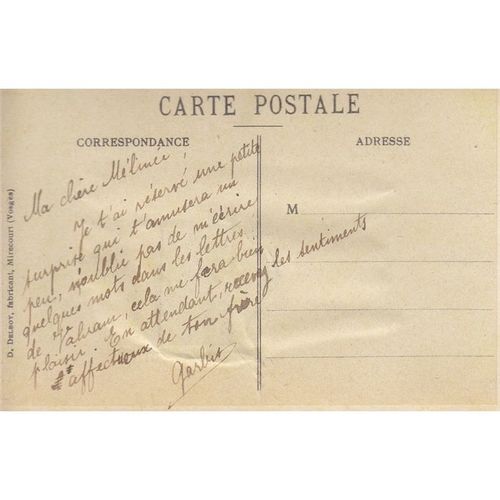 CARTE POSTALE
CORRESPONDANCE
ADRESSE
Ma chère Mélinée,
Je t'ai réservé une petite
surprise qui t'amusera un
peu, n'oublie pas de m'écrire
quelques mots dans les lettres
de Vahram, cela me fera bien
plaisir. En attendant, recevez les sentiments
affectueux de ton frère
Garbis
M
D. Delboy, fabricant, Mirecourt (Vosges)